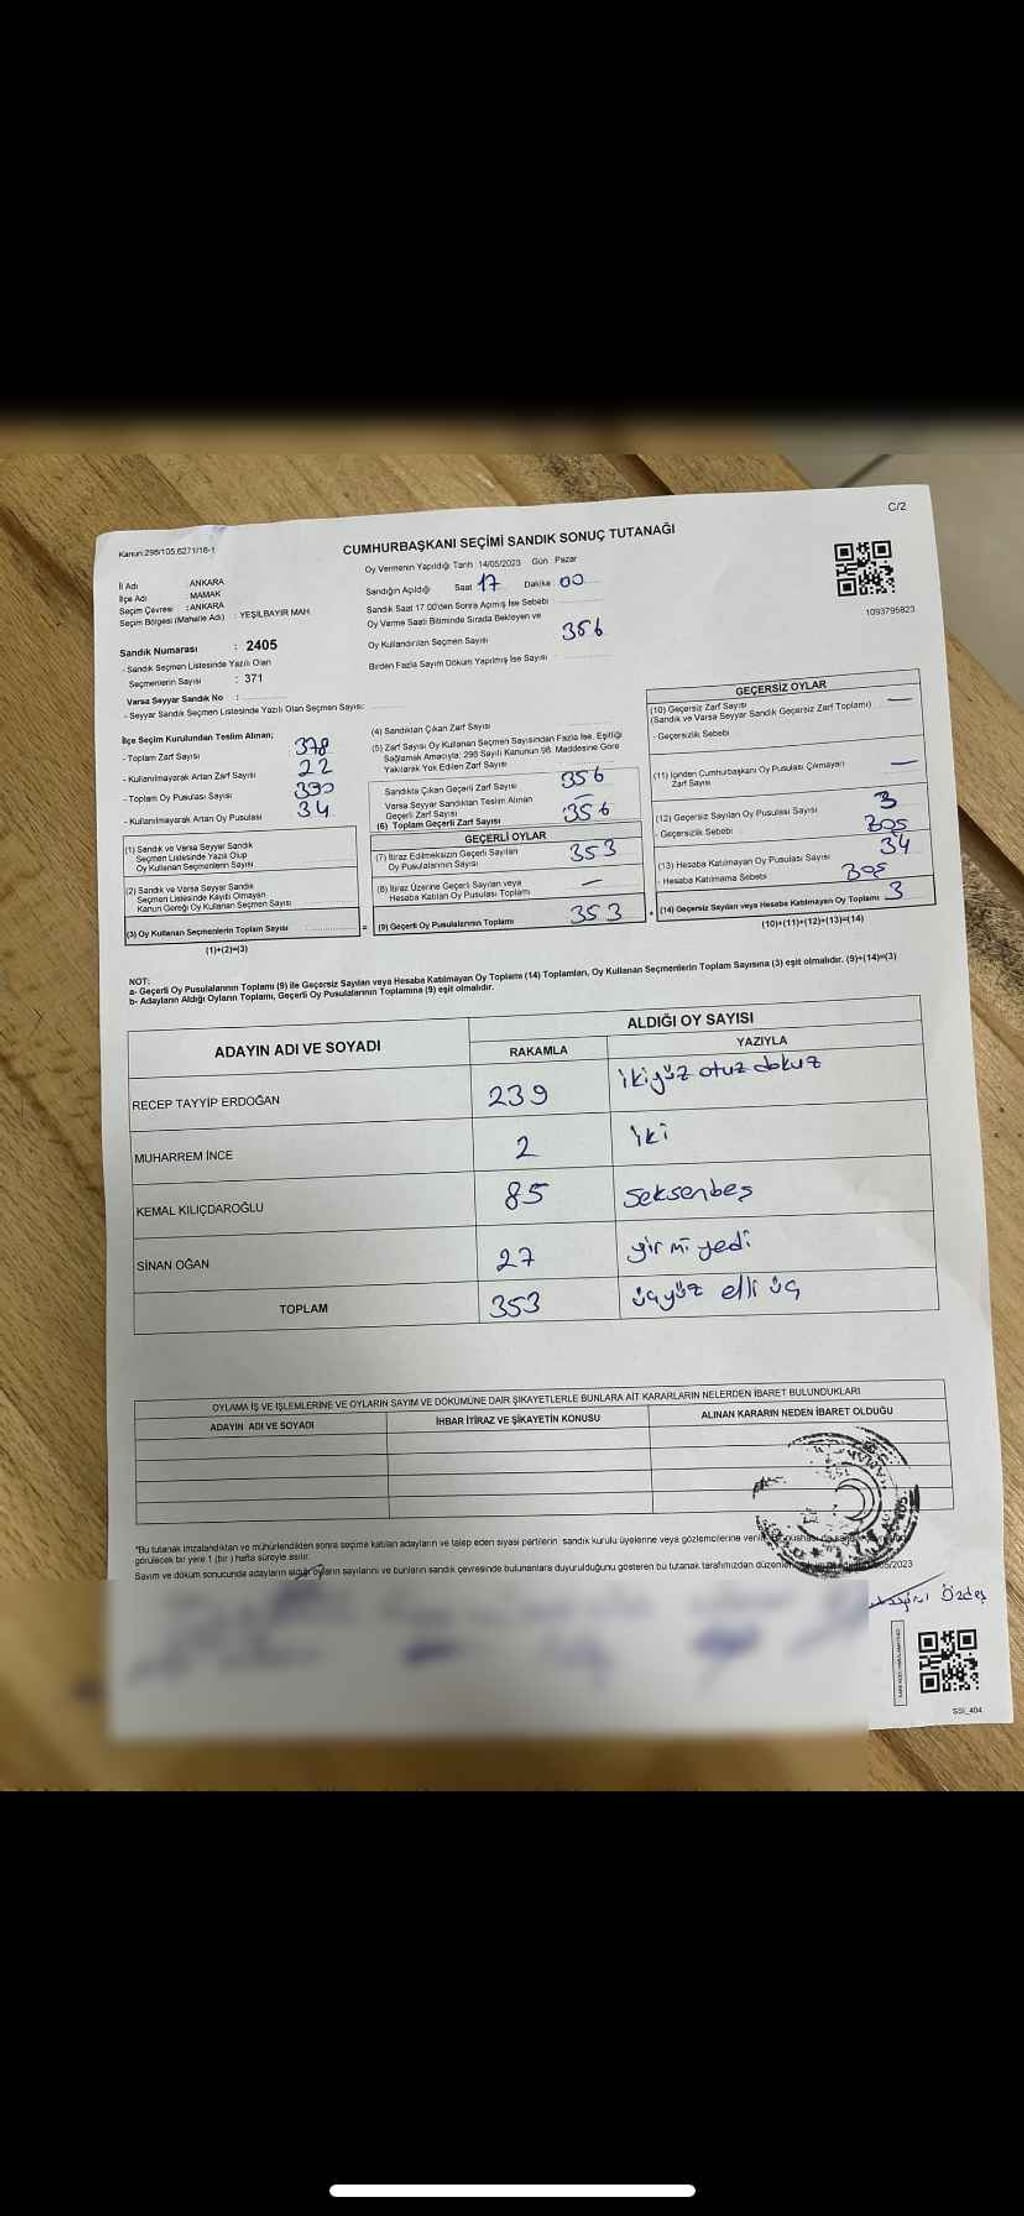 C/2
Kanun:298/105,6271/16-1
CUMHURBAŞKANI SEÇİMİ SANDIK SONUÇ TUTANAĞI
İl Adı : ANKARA
İlçe Adı : MAMAK
Seçim Çevresi : ANKARA
Seçim Bölgesi (Mahalle Adı) : YEŞİLBAYIR MAH.
Sandık Numarası : 2405
- Sandık Seçmen Listesinde Yazılı Olan
Seçmenlerin Sayısı : 371
Varsa Seyyar Sandık No :
- Seyyar Sandık Seçmen Listesinde Yazılı Olan Seçmen Sayısı:
Oy Vermenin Yapıldığı Tarih 14/05/2023 Gün Pazar
Sandığın Açıldığı Saat 17 Dakika 00
Sandık Saat 17.00'den Sonra Açılmış İse Sebebi
Oy Verme Saati Bitiminde Sırada Bekleyen ve
Oy Kullandırılan Seçmen Sayısı 356
Birden Fazla Sayım Döküm Yapılmış İse Sayısı
1093795823
İlçe Seçim Kurulundan Teslim Alınan;
- Toplam Zarf Sayısı 378
- Kullanılmayarak Artan Zarf Sayısı 22
- Toplam Oy Pusulası Sayısı 390
- Kullanılmayarak Artan Oy Pusulası 34
(1) Sandık ve Varsa Seyyar Sandık
Seçmen Listesinde Yazılı Olup
Oy Kullanan Seçmenlerin Sayısı
(2) Sandık ve Varsa Seyyar Sandık
Seçmen Listesinde Kayıtlı Olmayan
Kanun Gereği Oy Kullanan Seçmen Sayısı
(3) Oy Kullanan Seçmenlerin Toplam Sayısı =
(1)+(2)=(3)
(4) Sandıktan Çıkan Zarf Sayısı
(5) Zarf Sayısı Oy Kullanan Seçmen Sayısından Fazla İse, Eşitliği
Sağlamak Amacıyla; 298 Sayılı Kanunun 98. Maddesine Göre
Yakılarak Yok Edilen Zarf Sayısı
Sandıkta Çıkan Geçerli Zarf Sayısı 356
Varsa Seyyar Sandıktan Teslim Alınan
Geçerli Zarf Sayısı –
(6) Toplam Geçerli Zarf Sayısı 356
GEÇERLİ OYLAR
(7) İtiraz Edilmeksizin Geçerli Sayılan
Oy Pusulalarının Sayısı 353
(8) İtiraz Üzerine Geçerli Sayılan veya
Hesaba Katılan Oy Pusulası Toplamı —
(9) Geçerli Oy Pusulalarının Toplamı 353 +
GEÇERSİZ OYLAR
(10) Geçersiz Zarf Sayısı —
(Sandık ve Varsa Seyyar Sandık Geçersiz Zarf Toplamı)
- Geçersizlik Sebebi
(11) İçinden Cumhurbaşkanı Oy Pusulası Çıkmayan —
Zarf Sayısı
(12) Geçersiz Sayılan Oy Pusulası Sayısı 3
- Geçersizlik Sebebi
(13) Hesaba Katılmayan Oy Pusulası Sayısı 34
- Hesaba Katılmama Sebebi
(14) Geçersiz Sayılan veya Hesaba Katılmayan Oy Toplamı 3
(10)+(11)+(12)+(13)=(14)
NOT:
a- Geçerli Oy Pusulalarının Toplamı (9) ile Geçersiz Sayılan veya Hesaba Katılmayan Oy Toplamı (14) Toplamları, Oy Kullanan Seçmenlerin Toplam Sayısına (3) eşit olmalıdır. (9)+(14)=(3)
b- Adayların Aldığı Oyların Toplamı, Geçerli Oy Pusulalarının Toplamına (9) eşit olmalıdır.
ADAYIN ADI VE SOYADI
ALDIĞI OY SAYISI
RAKAMLA YAZIYLA
RECEP TAYYİP ERDOĞAN 239 ikiyüz otuz dokuz
MUHARREM İNCE 2 iki
KEMAL KILIÇDAROĞLU 85 seksenbeş
SİNAN OĞAN 27 yirmi yedi
TOPLAM 353 üçyüz elli üç
OYLAMA İŞ VE İŞLEMLERİNE VE OYLARIN SAYIM VE DÖKÜMÜNE DAİR ŞİKAYETLERLE BUNLARA AİT KARARLARIN NELERDEN İBARET BULUNDUKLARI
ADAYIN ADI VE SOYADI İHBAR İTİRAZ VE ŞİKAYETİN KONUSU ALINAN KARARIN NEDEN İBARET OLDUĞU
*Bu tutanak imzalandıktan ve mühürlendikten sonra seçime katılan adayların ve talep eden siyasi partilerin sandık kurulu üyelerine veya gözlemcilerine
görülecek bir yere 1 (bir) hafta süreyle asılır.
Sayım ve döküm sonucunda adayların aldığı oyların sayılarını ve bunların sandık çevresinde bulunanlara duyurulduğunu gösteren bu tutanak tarafımızdan
Özdeş
SSI_404